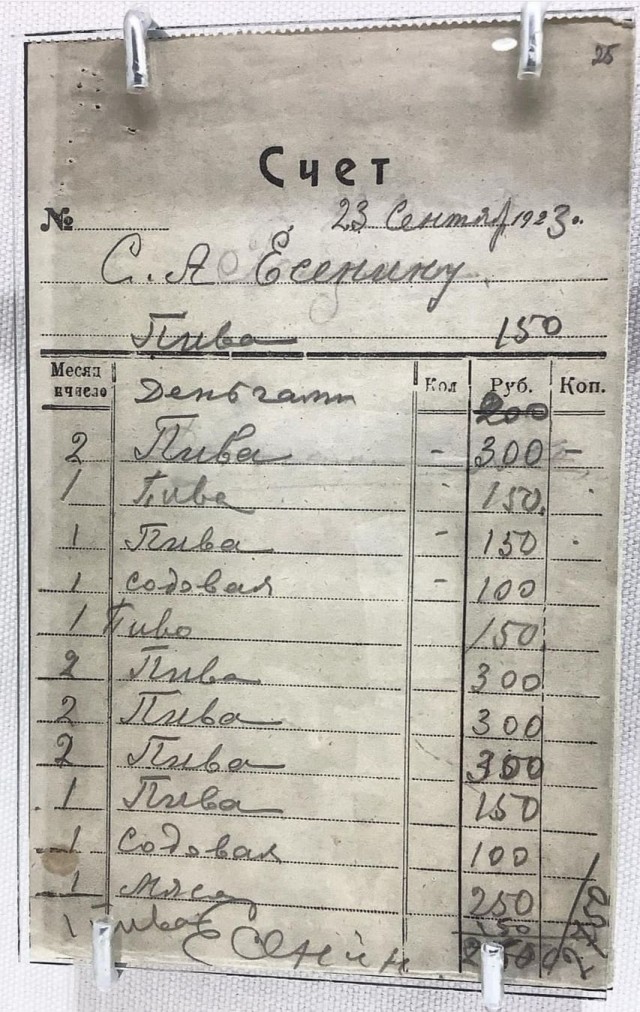 25
Счет
№ 23 Сентяр 1923 г.
С. А Есенину
Пива 150
Месяц и число Деньгами Кол Руб. Коп.
200
2 Пива - 300 -
1 Пива - 150.
1 Пива - 150
1 содовая - 100
1 Пиво 150
2 Пива 300
2 Пива 300
2 Пива 300
1 Пива 150
1 Содовая 100
1 Мясо 250
1 Пива 150
Есенин